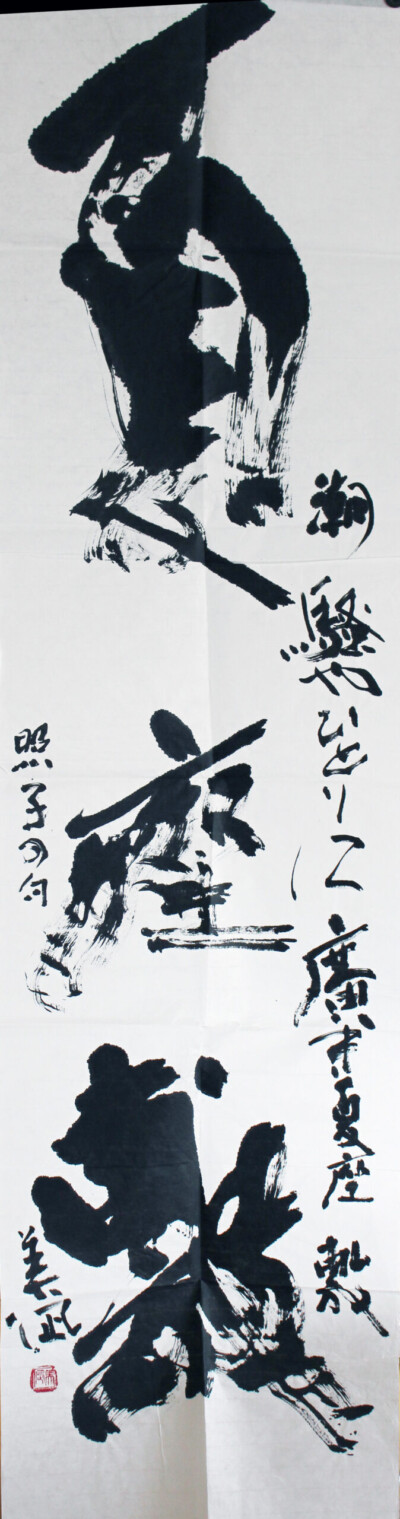 潮騒やひとりに廣き夏座敷
夏座敷
照子の句
美